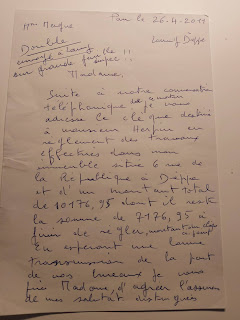 Mme
Pau le 26.4.2011
Double
Dieppe
envoyé à
Madame,
Suite à notre conversation
téléphonique je vous
adresse le chèque destiné
à monsieur en
règlement des travaux
effectués dans mon
immeuble situé 6 rue de
la République à Dieppe
et d'un montant total
de 10176,95 dont il reste
la somme de 7176,95 à
de régler,
En espérant une bonne
transmission de la part
de vos bureaux je vous
prie Madame, d'agréer l'assurance
de mes salutat distingués